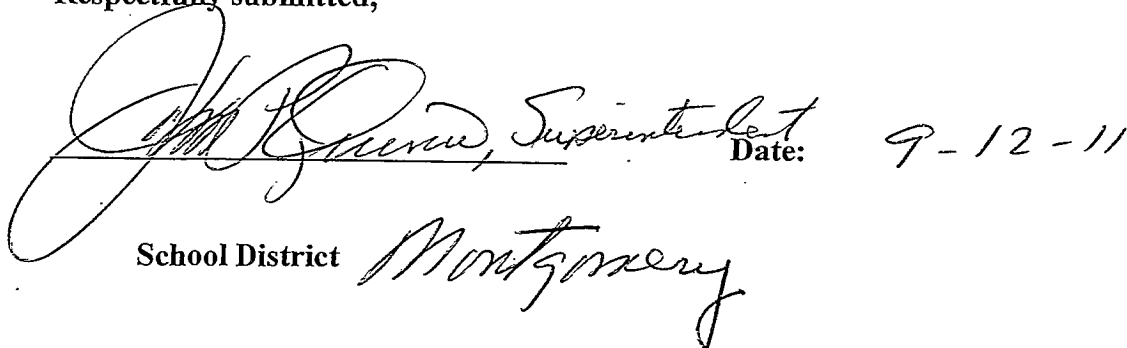 Respectfully submitted,
John, Superintendent Date: 9-12-11
School District Montgomery